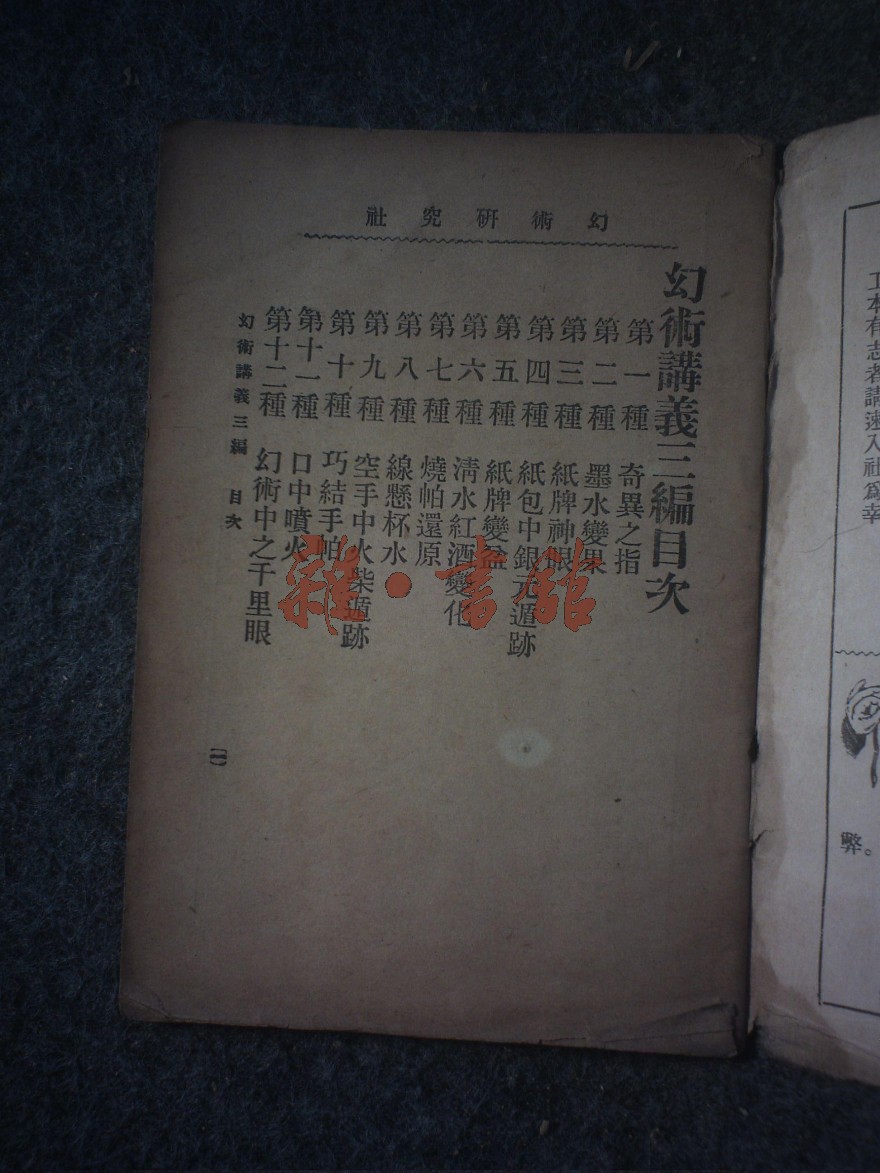 幻術研究社
幻術講義三編目次
第一種 奇異之指
第二種 墨水變果
第三種 紙牌神眼
第四種 紙包中銀元遁跡
第五種 紙牌變盆
第六種 清水紅酒變化
第七種 燒帕還原
第八種 線懸杯水
第九種 空手中火柴遁跡
第十種 巧結手帕
第十一種 口中噴火
第十二種 幻術中之千里眼
幻術講義三編 目次
(一)
雜·書館
工本有志者請速入社爲幸
弊。